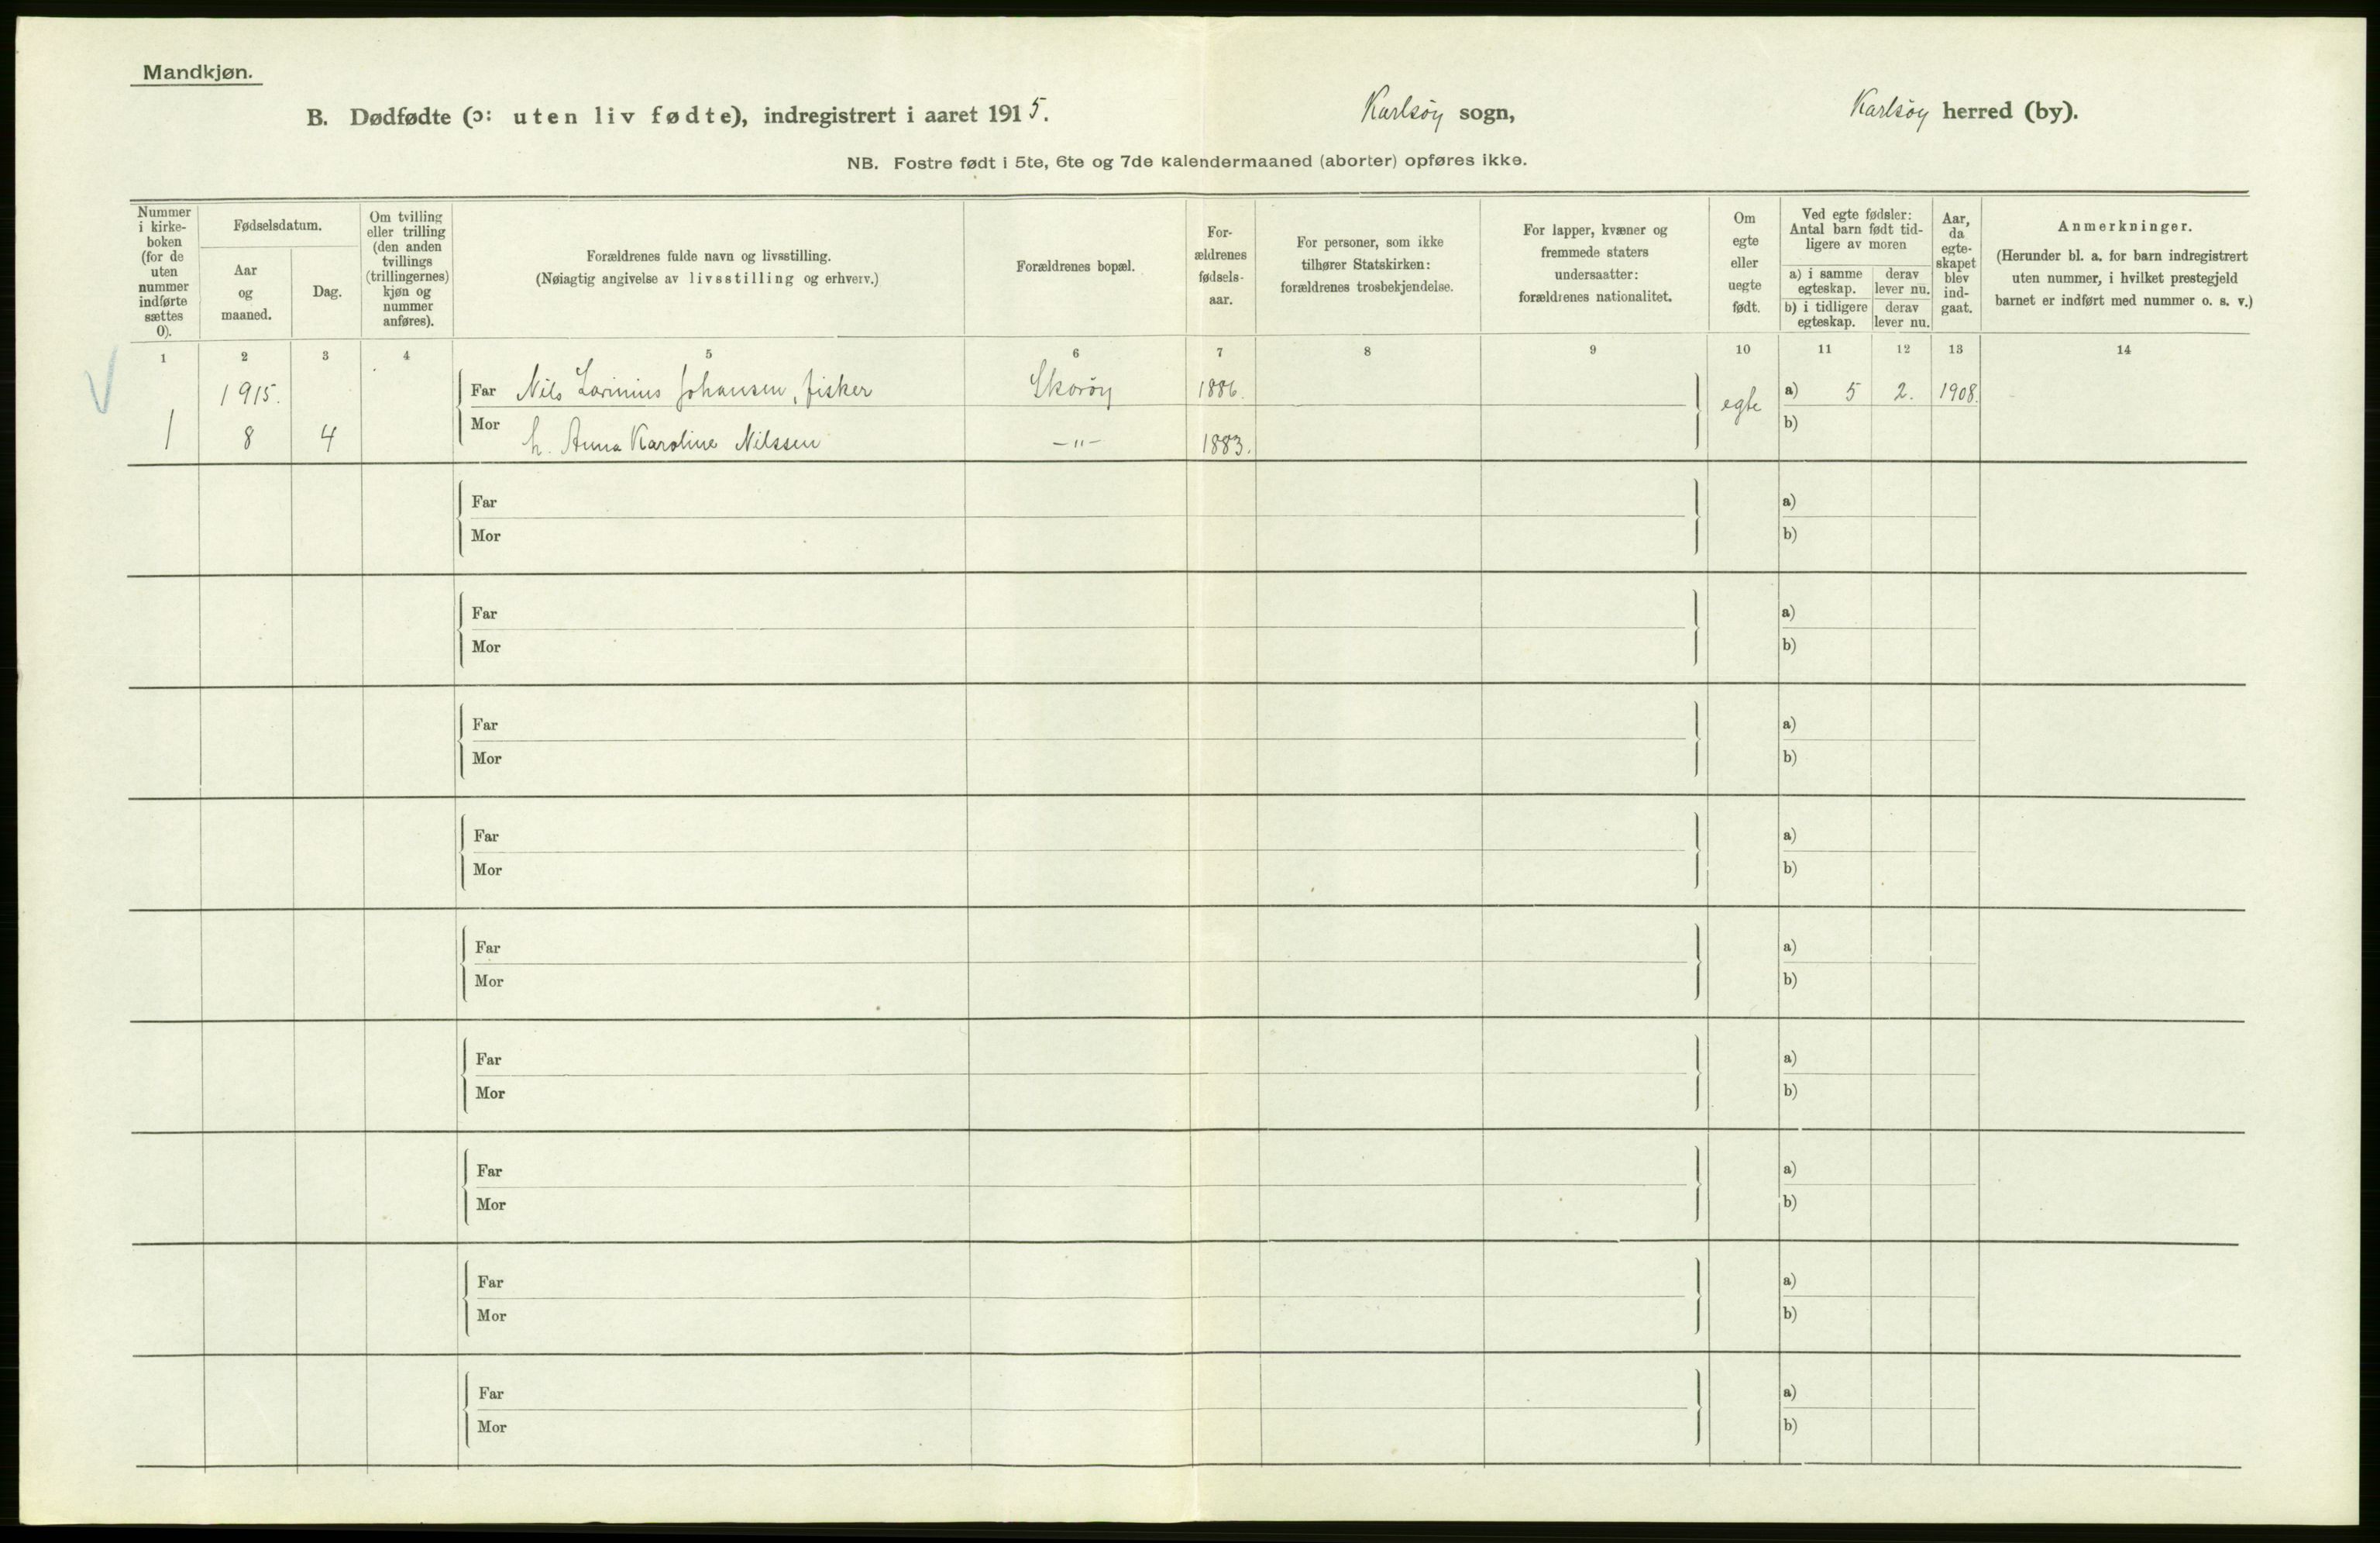 Mandkjøn.
B. Dødfødte (ɔ: uten liv fødte), indregistrert i aaret 1915. Karlsöy sogn, Karlsöy herred (by).
NB. Fostre født i 5te, 6te og 7de kalendermaaned (aborter) opføres ikke.
Nummer i kirke-boken (for de uten nummer indførte sættes 0).
Fødselsdatum.
Aar og maaned.
Dag.
Om tvilling eller trilling (den anden tvillings (trillingernes) kjøn og nummer anføres).
Forældrenes fulde navn og livsstilling.
(Nøiagtig angivelse av livsstilling og erhverv.)
Forældrenes bopæl.
For-ældrenes fødsels-aar.
For personer, som ikke tilhører Statskirken: forældrenes trosbekjendelse.
For lapper, kvæner og fremmede staters undersaatter: forældrenes nationalitet.
Om egte eller uegte født.
Ved egte fødsler: Antal barn født tid-ligere av moren
a) i samme egteskap.
derav lever nu.
b) i tidligere egteskap.
derav lever nu.
Aar, da egte-skapet blev ind-gaat.
Anmerkninger.
(Herunder bl. a. for barn indregistrert uten nummer, i hvilket prestegjeld barnet er indført med nummer o. s. v.)
1 2 3 4 5 6 7 8 9 10 11 12 13 14
1915. Far Nils Johansen, fisker Skoröy 1886. egte a) 5 2. 1908.
1 8 4 Mor h. Anna Karoline Nilssen —"— 1883. b)
Far a)
Mor b)
Far a)
Mor b)
Far a)
Mor b)
Far a)
Mor b)
Far a)
Mor b)
Far a)
Mor b)
Far a)
Mor b)
Far a)
Mor b)
Far a)
Mor b)